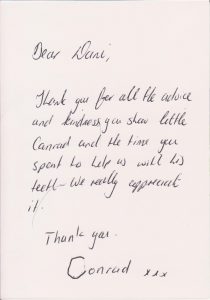 Dear Dani,
Thank you for all the advice
and kindness you show little
Conrad and the time you
spent to help us with his
teeth – We really appreciate
it.
Thank you.
Conrad xxx